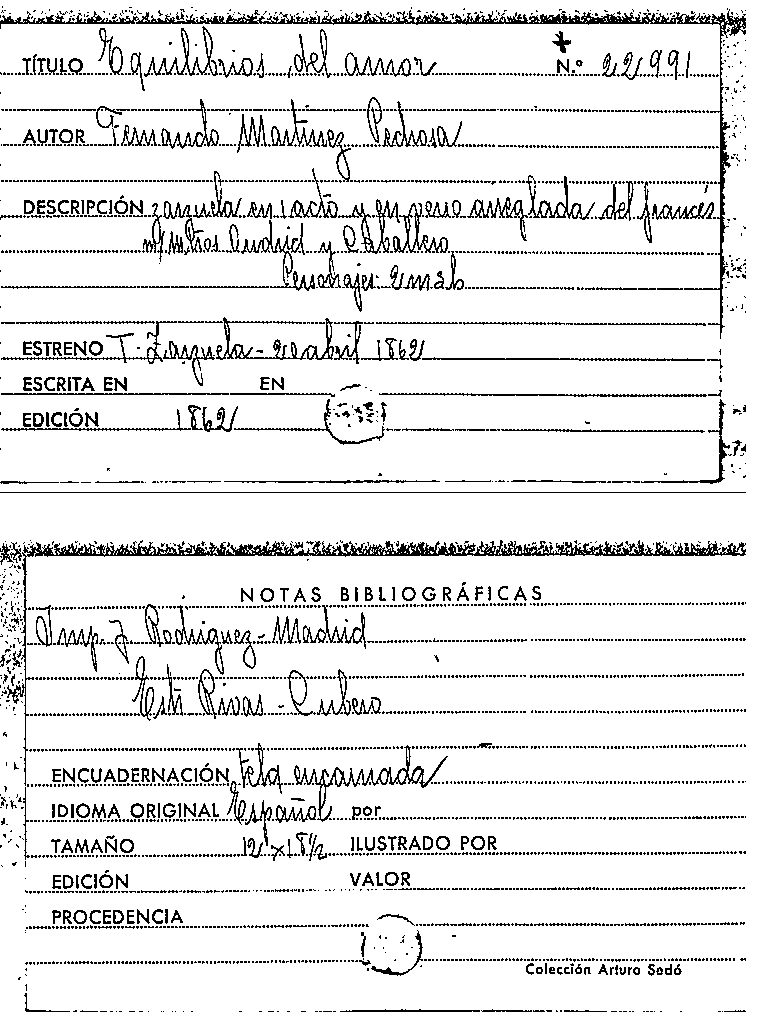 TÍTULO Equilibrios del amor N.º 22991
AUTOR Fernando Martínez Pedrosa
DESCRIPCIÓN zarzuela en 1 acto y en verso arreglada del francés
Mtros Oudrid y Caballero
Personajes: 2m 3h
ESTRENO T. Zarzuela - 20 abril 1862
ESCRITA EN EN
EDICIÓN 1862
NOTAS BIBLIOGRÁFICAS
Imp. J. Rodriguez - Madrid
Rivas - Cubero
ENCUADERNACIÓN tela encarnada
IDIOMA ORIGINAL Español por
TAMAÑO 12 x 18½ ILUSTRADO POR
EDICIÓN VALOR
PROCEDENCIA
Colección Arturo Sedó